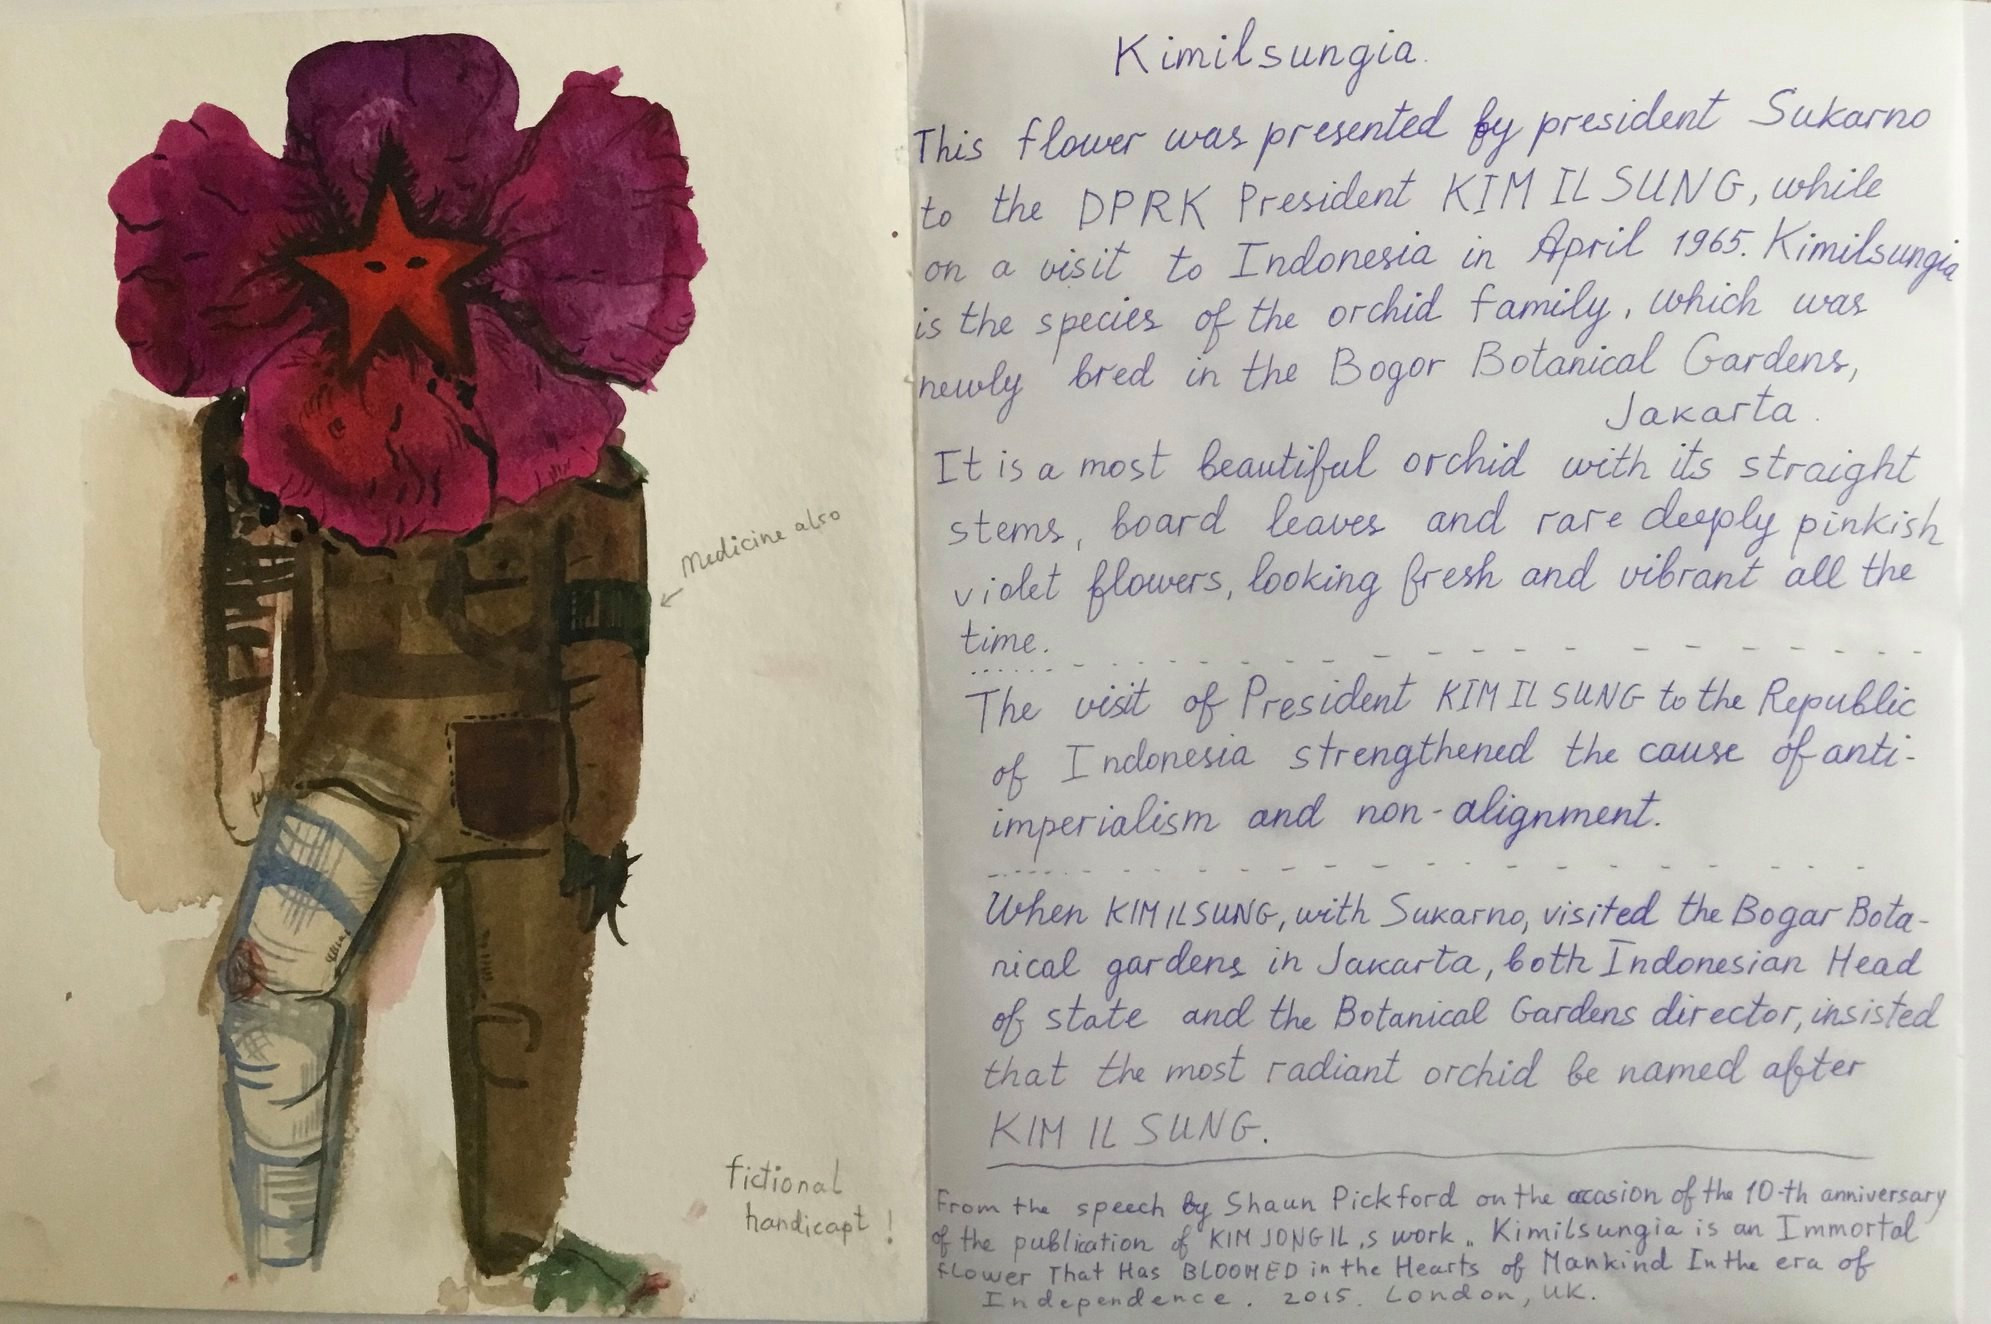 Medicine also
fictional
handicapt !
Kimilsungia.
This flower was presented by president Sukarno
to the DPRK President KIM IL SUNG, while
on a visit to Indonesia in April 1965. Kimilsungia
is the species of the orchid family, which was
newly bred in the Bogor Botanical Gardens,
Jakarta.
It is a most beautiful orchid with its straight
stems, board leaves and rare deeply pinkish
violet flowers, looking fresh and vibrant all the
time.
The visit of President KIM IL SUNG to the Republic
of Indonesia strengthened the cause of anti-
imperialism and non-alignment.
When KIM IL SUNG, with Sukarno, visited the Bogar Bota-
nical gardens in Jakarta, both Indonesian Head
of state and the Botanical Gardens director, insisted
that the most radiant orchid be named after
KIM IL SUNG.
From the speech by Shaun Pickford on the occasion of the 10-th anniversary
of the publication of KIM JONG IL,s work „ Kimilsungia is an Immortal
flower That Has BLOOMED in the Hearts of Mankind In the era of
Independence. 2015. London, UK.